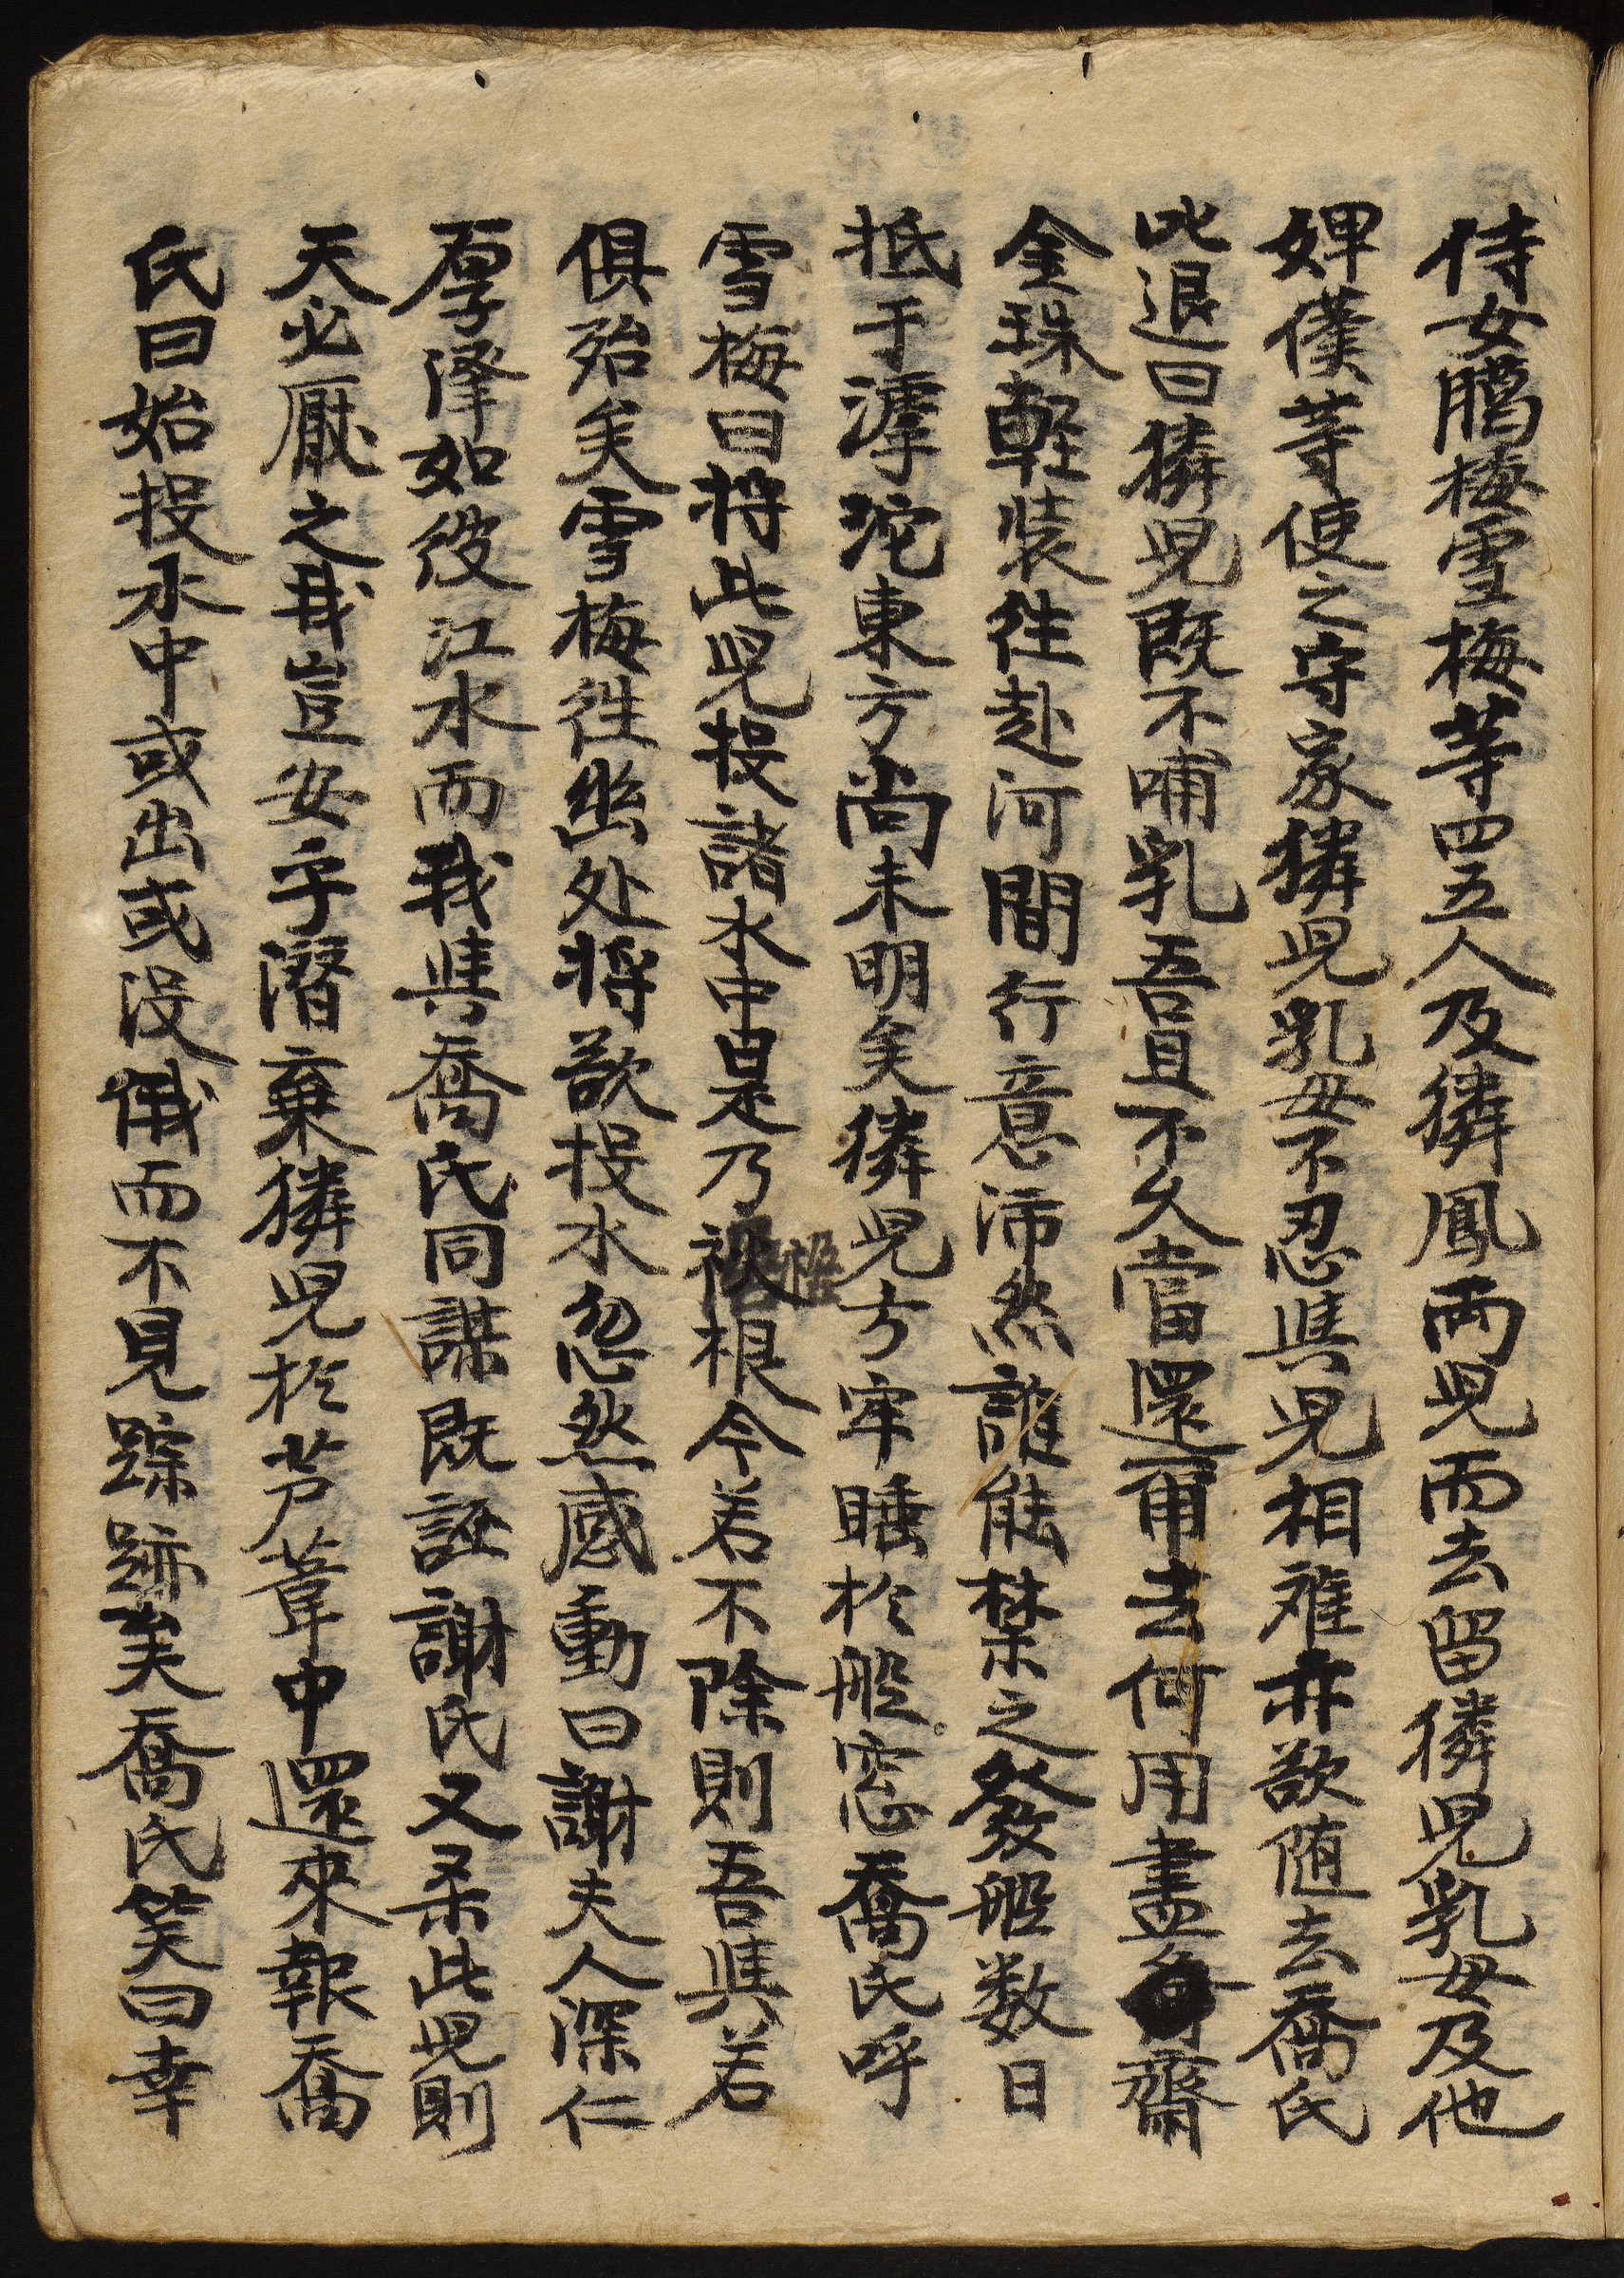 侍女臈梅雪梅等四五人及獜鳳两児而去留獜児乳母及他
婢僕等使之守家獜児乳母不忍與児相难亦欲随去喬氏
叱退曰獜児既不哺乳吾且不久當還甭去何用盡齎
金珠軽装徃赴河間行意沛然誰能禁之發船数日
抵于滹沱東方尚未明矣獜児方牢睡於船窓喬氏呼
雪梅曰将此児投諸水中是乃根今若不除則吾與若
俱殆矣雪梅徃幽处将欲投水忽然感動曰謝夫人深仁
厚泽如彼江水而我與喬氏同謀既誣謝氏又杀此児則
天必厭之我豈安乎潛棄獜児於芦葦中還來報喬
氏曰始投水中或出或没俄而不見踪跡矣喬氏笑曰幸